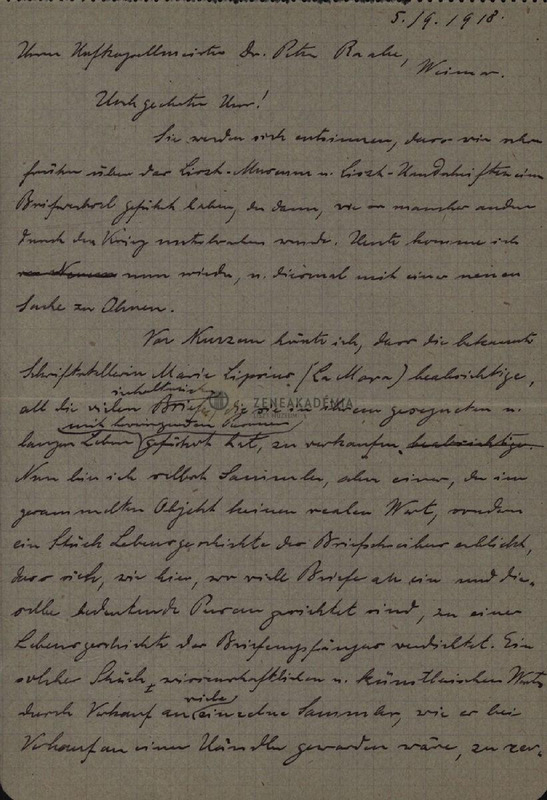 5./9. 1918.
Herrn Hofkapellmeister Dr. Peter Raabe,
Weimar.
Hochgeehrter Herr!
Sie werden sich entsinnen, dass wir schon
früher über das Liszt-Museum u. Liszt-Handschriften einen
Briefwechsel geführt haben, der dann, wie so mancher andere
durch den Krieg unterbrochen wurde. Heute komme ich
nun wieder, u. diesmal mit einer neuen
Sache zu Ihnen.
Vor Kurzem hörte ich, dass die bekannte
Schriftstellerin Marie Lipsius (La Mara) beabsichtige,
inhaltreichen
all die vielen Briefe, die sie in ihrem gesegneten u.
mit hervorragenden Personen
langen Leben geführt hat, zu verkaufen. beabsichtige.
Nun bin ich selbst Sammler, aber einer, der im
gesammelten Objekt keinen realen Wert, sondern
ein Stück Lebensgeschichte des Briefschreibers erblickt,
dass sich, wie hier, wo viele Briefe an ein und die-
selbe bedeutende Person gerichtet sind, zu einer
Lebensgeschichte des Briefempfängers verdichtet. Ein
solches Stück wissenschaftlichen u. künstlerischen Werts
viele
durch Verkauf an einzelne Sammler, wie er bei
Verkauf an einen Händler geworden wäre, zu zer-
ZENEAKADÉMIA